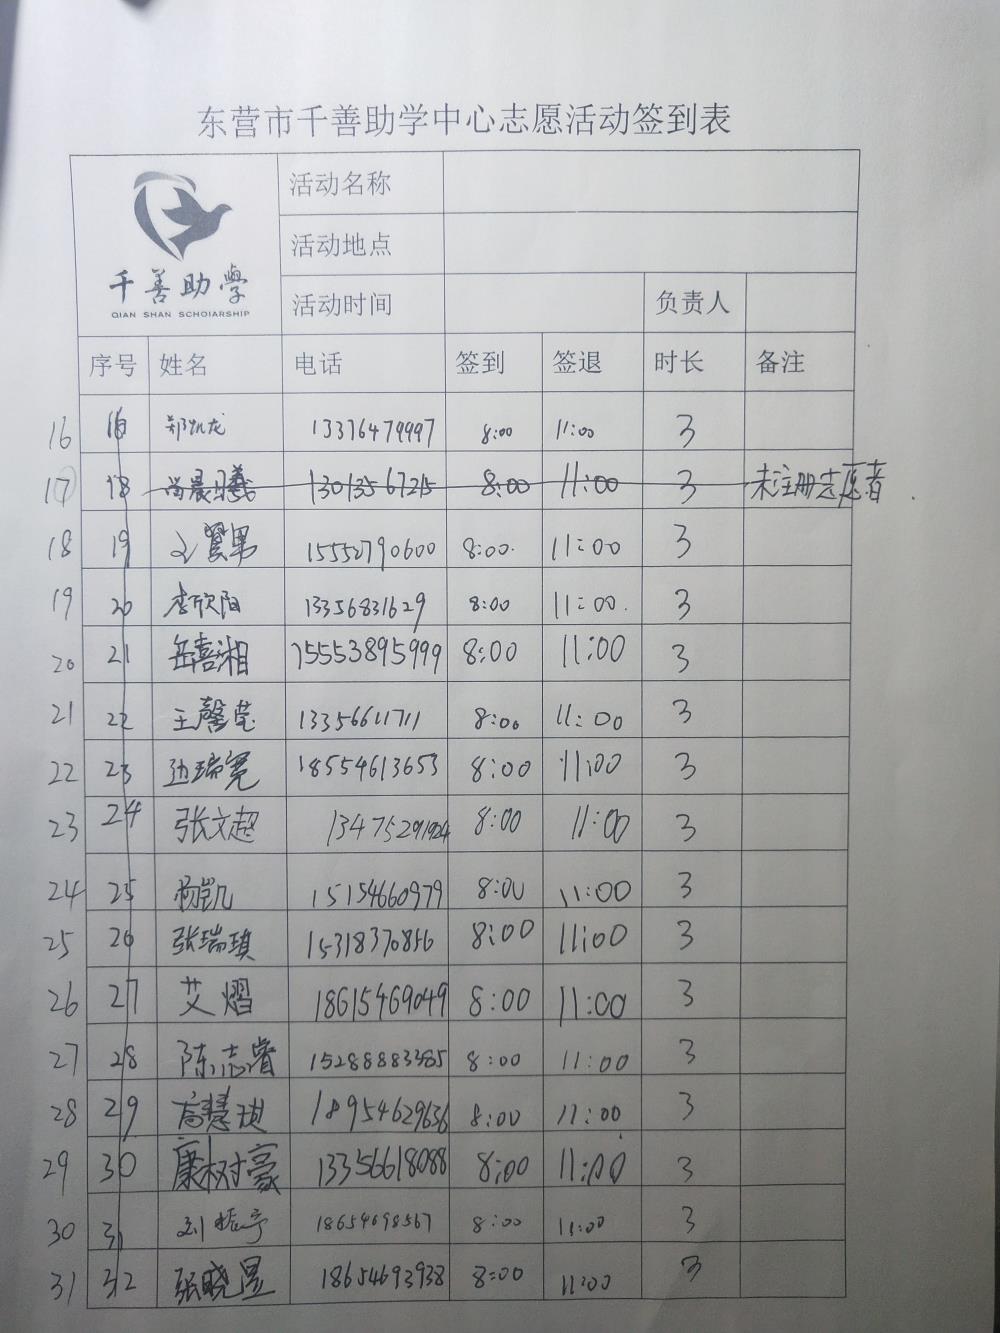 东营市千善助学中心志愿活动签到表
千善助学
QIAN SHAN SCHOIARSHIP
活动名称
活动地点
活动时间 负责人
序号 姓名 电话 签到 签退 时长 备注
16 郑凯龙 13376479997 8:00 11:00 3
17 18 尚晨曦 13013567215 8:00 11:00 3 未注册志愿者
18 19 翼男 15552790600 8:00 11:00 3
19 20 李欣阳 13356831629 8:00 11:00 3
20 21 岳喜湘 15553895999 8:00 11:00 3
21 22 王馨莹 13356611711 8:00 11:00 3
22 23 边瑞宽 18554613653 8:00 11:00 3
23 24 张文超 13475291924 8:00 11:00 3
24 25 杨凯 15154660979 8:00 11:00 3
25 26 张瑞琪 15318370856 8:00 11:00 3
26 27 艾熠 18615469049 8:00 11:00 3
27 28 陈志睿 15288883385 8:00 11:00 3
28 29 高慧珺 18954629636 8:00 11:00 3
29 30 康树豪 13356618088 8:00 11:00 3
30 31 刘振宇 18654698567 8:00 11:00 3
31 32 张晓昱 18654693938 8:00 11:00 3